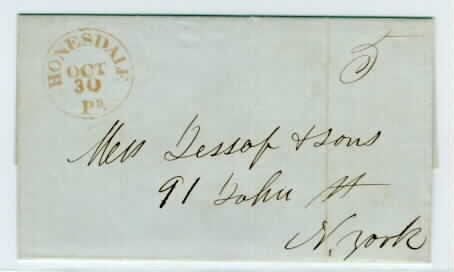 HONESDALE
OCT
30
Pa.
5
Mess Jessop & Sons
91 John St
N. York